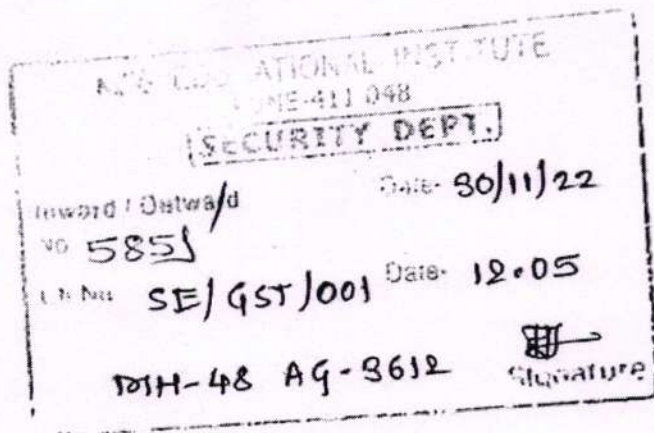 EDUCATIONAL INSTITUTE
PUNE-411 048
SECURITY DEPT.
Inward / Outward Date- 30/11/22
No 5851
Ch. No. SE/GST/001 Date- 12.05
MH-48 AG-9612
Signature